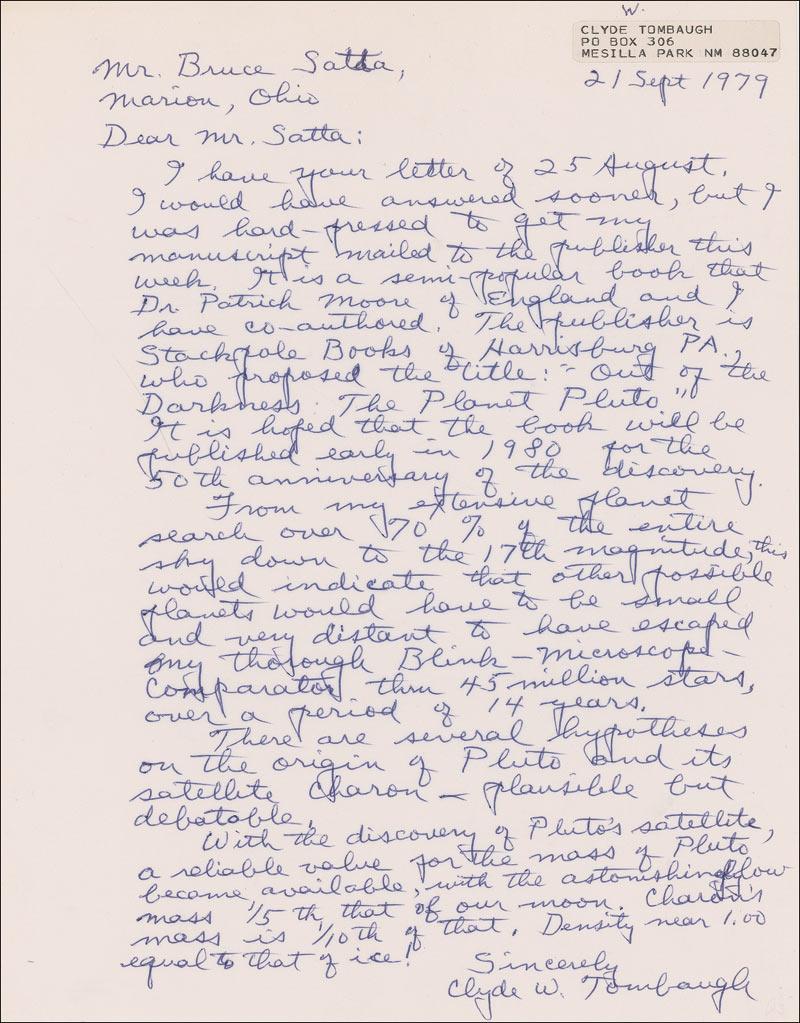 W.
CLYDE TOMBAUGH
PO BOX 306
MESILLA PARK NM 88047
21 Sept 1979
Mr. Bruce Satta,
Marion, Ohio
Dear Mr. Satta:
I have your letter of 25 August.
I would have answered sooner, but I
was hard-pressed to get my
manuscript mailed to the publisher this
week. It is a semi-popular book that
Dr. Patrick Moore of England and I
have co-authored. The publisher is
Stackpole Books of Harrisburg PA.,
who proposed the title: "Out of the
Darkness: The Planet Pluto"
It is hoped that the book will be
published early in 1980 for the
50th anniversary of the discovery.
From my extensive planet
search over 70 % of the entire
sky down to the 17th magnitude, this
would indicate that other possible
planets would have to be small
and very distant to have escaped
my thorough Blink-Microscope-
Comparator thru 45 million stars,
over a period of 14 years.
There are several hypotheses
on the origin of Pluto and its
satellite Charon – plausible but
debatable.
With the discovery of Pluto's satellite,
a reliable value for the mass of Pluto
became available, with the astonishing low
mass 1/5 th that of our moon. Charon's
mass is 1/10th of that. Density near 1.00
equal to that of ice!
Sincerely
Clyde W. Tombaugh